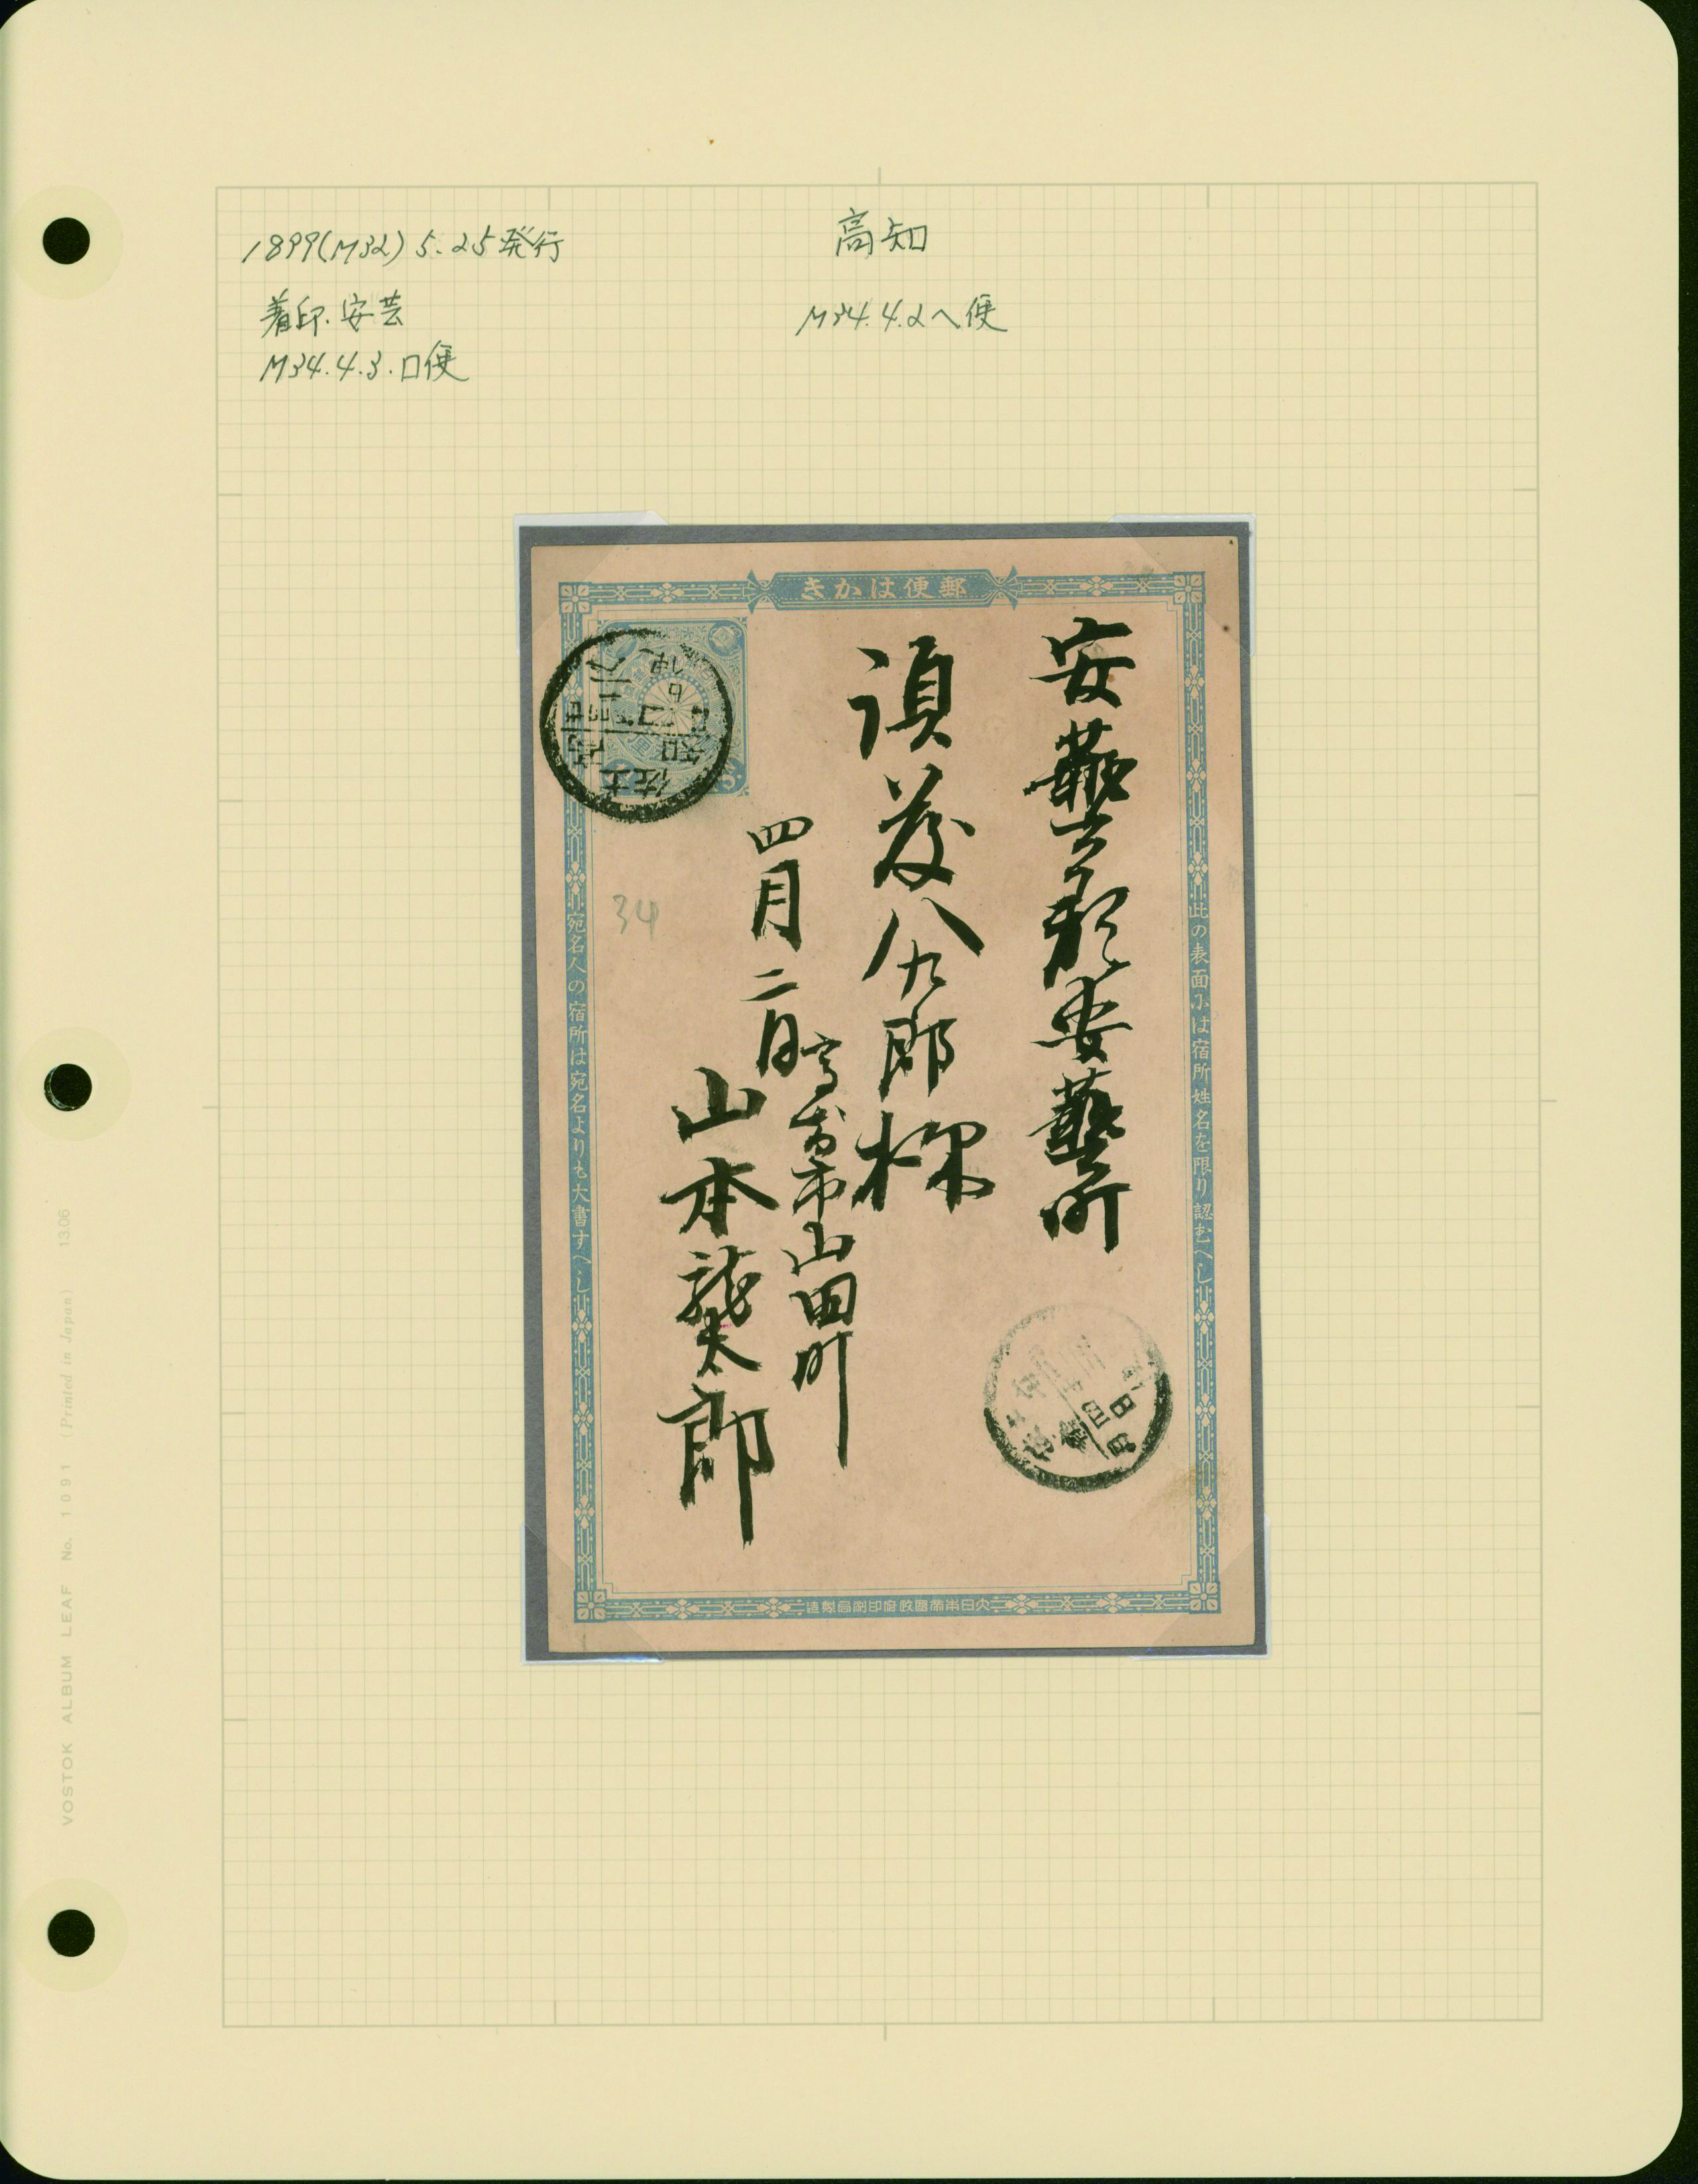 1899(M32) 5.25発行
着印.安芸
M34.4.3.ロ便
高知
M34.4.2ヘ便
郵便はかき
此の表面には宿所姓名を限り認むへし
宛名人の宿所は宛名よりも大書すへし
大日本帝國政府印刷局製造
安藝郡安藝町
須藤八九郎様
四月二日
高知市山田町
山本龍太郎
34
土佐
高知
VOSTOK ALBUM LEAF No. 1091 (Printed in Japan) 1306